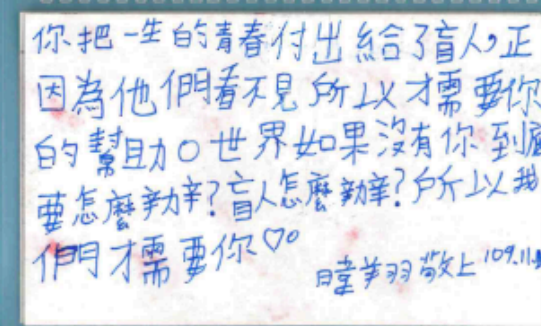 你把一生的青春付出給了盲人,正
因為他們看不見所以才需要你
的幫助。世界如果沒有你到底
要怎麼辦?盲人怎麼辦?所以我
們才需要你♡。
敬上 109.11.